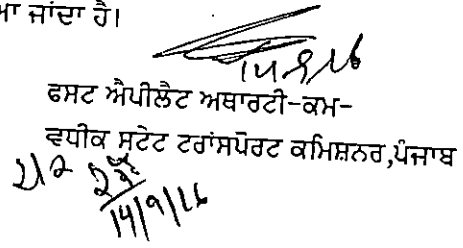 ਜਾਂਦਾ ਹੈ।
14/9/16
ਫਸਟ ਐਪੀਲੈਟ ਅਥਾਰਟੀ-ਕਮ-
ਵਧੀਕ ਸਟੇਟ ਟਰਾਂਸਪੋਰਟ ਕਮਿਸ਼ਨਰ,ਪੰਜਾਬ
14/9/16